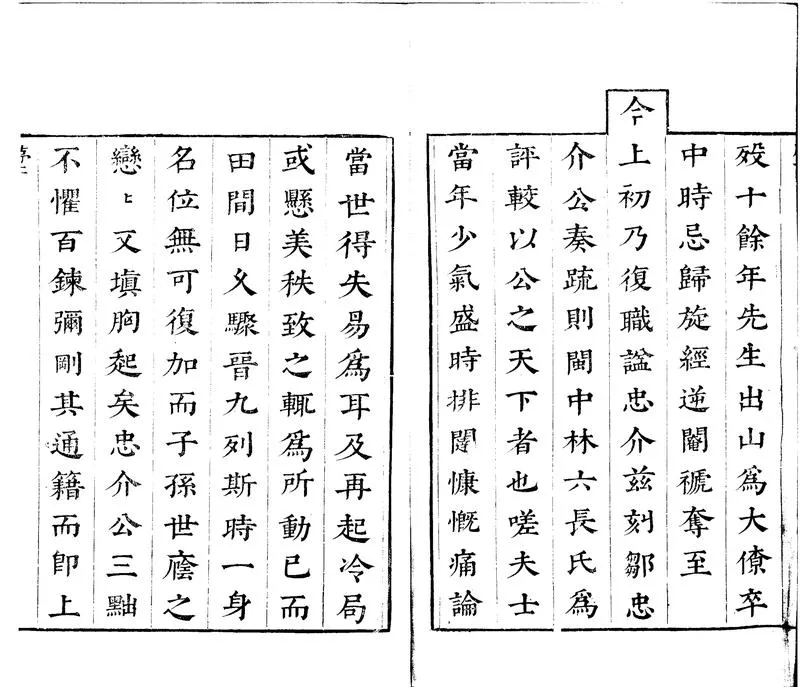 歿十餘年先生出山爲大僚卒
中時忌歸旋經逆閹褫奪至
今上初乃復職諡忠介茲刻鄒忠
介公奏疏則閩中林六長氏爲
評較以公之天下者也嗟夫士
當年少氣盛時排闥慷慨痛論
當世得失易爲耳及再起冷局
或懸美秩致之輒爲所動已而
田間日久驟晉九列斯時一身
名位無可復加而子孫世廕之
戀〻又塡胸起矣忠介公三黜
不懼百鍊彌剛其通籍而卽上